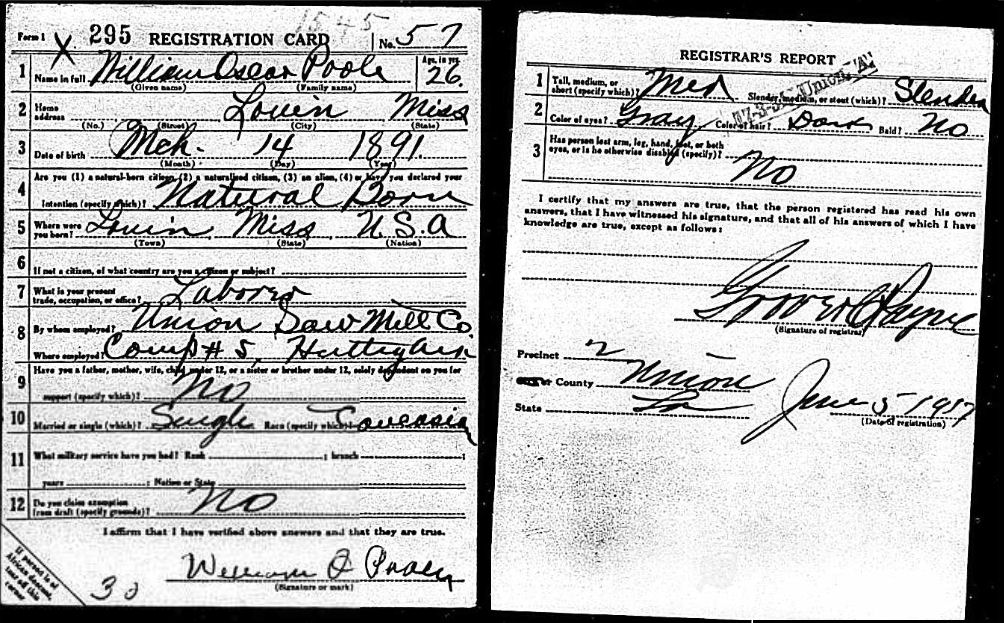 1545
Form 1 X 295 REGISTRATION CARD No. 57
1 Name in full William Oscar Poole Age, in yrs. 26
(Given name) (Family name)
2 Home address Louin Miss
(No.) (Street) (City) (State)
3 Date of birth Mch. 14 1891
(Month) (Day) (Year)
4 Are you (1) a natural-born citizen, (2) a naturalized citizen, (3) an alien, (4) or have you declared your
intention (specify which)? Natural Born
5 Where were you born? Louin Miss U.S.A
(Town) (State) (Nation)
6 If not a citizen, of what country are you a citizen or subject?
7 What is your present trade, occupation, or office? Laborer
8 By whom employed? Union Saw Mill Co
Where employed? Camp # 5, Huttig Ark
9 Have you a father, mother, wife, child under 12, or a sister or brother under 12, solely dependent on you for
support (specify which)? No
10 Married or single (which)? Single Race (specify which)? Caucasian
11 What military service have you had? Rank ; branch ;
years ; Nation or State
12 Do you claim exemption from draft (specify grounds)? No
I affirm that I have verified above answers and that they are true.
William O Pooley
(Signature or mark)
If person is of
African descent,
tear off this
corner
30
REGISTRAR'S REPORT
1 Tall, medium, or short (specify which)? Med Slender, medium, or stout (which)? Slender
2 Color of eyes? Gray Color of hair? Dark Bald? No
3 Has person lost arm, leg, hand, foot, or both
eyes, or is he otherwise disabled (specify)?
No
I certify that my answers are true, that the person registered has read his own
answers, that I have witnessed his signature, and that all of his answers of which I have
knowledge are true, except as follows:
Grover C Payne
(Signature of registrar)
Precinct 2
County Union
State La June 5 1917
(Date of registration)